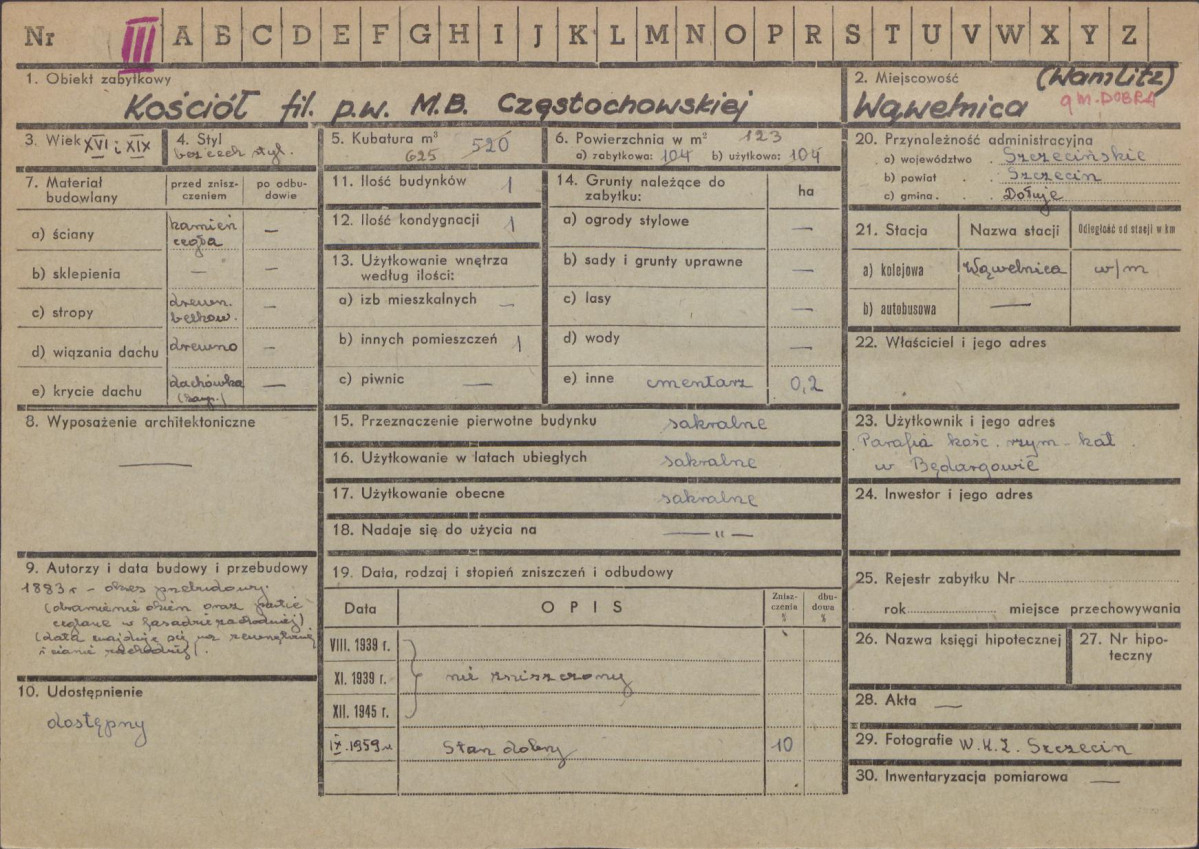 Nr III A B C D E F G H I J K L M N O P R S T U V W X Y Z
1. Obiekt zabytkowy
Kościół fil. p.w. M.B. Częstochowskiej
2. Miejscowość (Wamlitz)
Wąwelnica gm. DOBRA
3. Wiek XVI i XIX
4. Styl
bez cech styl.
5. Kubatura m³
625 520
6. Powierzchnia w m² 123
a) zabytkowa: 104 b) użytkowa: 104
7. Materiał budowlany
przed zniszczeniem
po odbudowie
a) ściany kamień cegła —
b) sklepienia — —
c) stropy drewn. belkow. —
d) wiązania dachu drewno —
e) krycie dachu dachówka —
8. Wyposażenie architektoniczne
—
9. Autorzy i data budowy i przebudowy
1883 r – okres przebudowy.
(obramienie okien oraz partie
ceglane w fasadzie zachodniej)
(data znajduje się na zewnętrznej
ścianie zachodniej).
10. Udostępnienie
dostępny
11. Ilość budynków 1
12. Ilość kondygnacji 1
13. Użytkowanie wnętrza
według ilości:
a) izb mieszkalnych —
b) innych pomieszczeń 1
c) piwnic —
14. Grunty należące do
zabytku:
ha
a) ogrody stylowe —
b) sady i grunty uprawne —
c) lasy —
d) wody —
e) inne cmentarz 0,2
15. Przeznaczenie pierwotne budynku sakralne
16. Użytkowanie w latach ubiegłych sakralne
17. Użytkowanie obecne sakralne
18. Nadaje się do użycia na — " —
19. Data, rodzaj i stopień zniszczeń i odbudowy
Data
OPIS
Zniszczenie %
dbudowa %
VIII. 1939 r.
XI. 1939 r. nie zniszczony
XII. 1945 r.
IX. 1959 r Stan dobry 10
20. Przynoleżność administracyjna
a) województwo Szczecińskie
b) powiat Szczecin
c) gmina Dołuje
21. Stacja
Nazwa stacji
Odległość od stacji w km
a) kolejowa Wąwelnica w/m
b) autobusowa —
22. Właściciel i jego adres
23. Użytkownik i jego adres
Parafia kośc. rzym–kat.
w Będargowie
24. Inwestor i jego adres
25. Rejestr zabytku Nr
rok miejsce przechowywania
26. Nazwa księgi hipotecznej
27. Nr hipoteczny
28. Akta —
29. Fotografie W.K.Z. Szczecin
30. Inwentaryzacja pomiarowa —